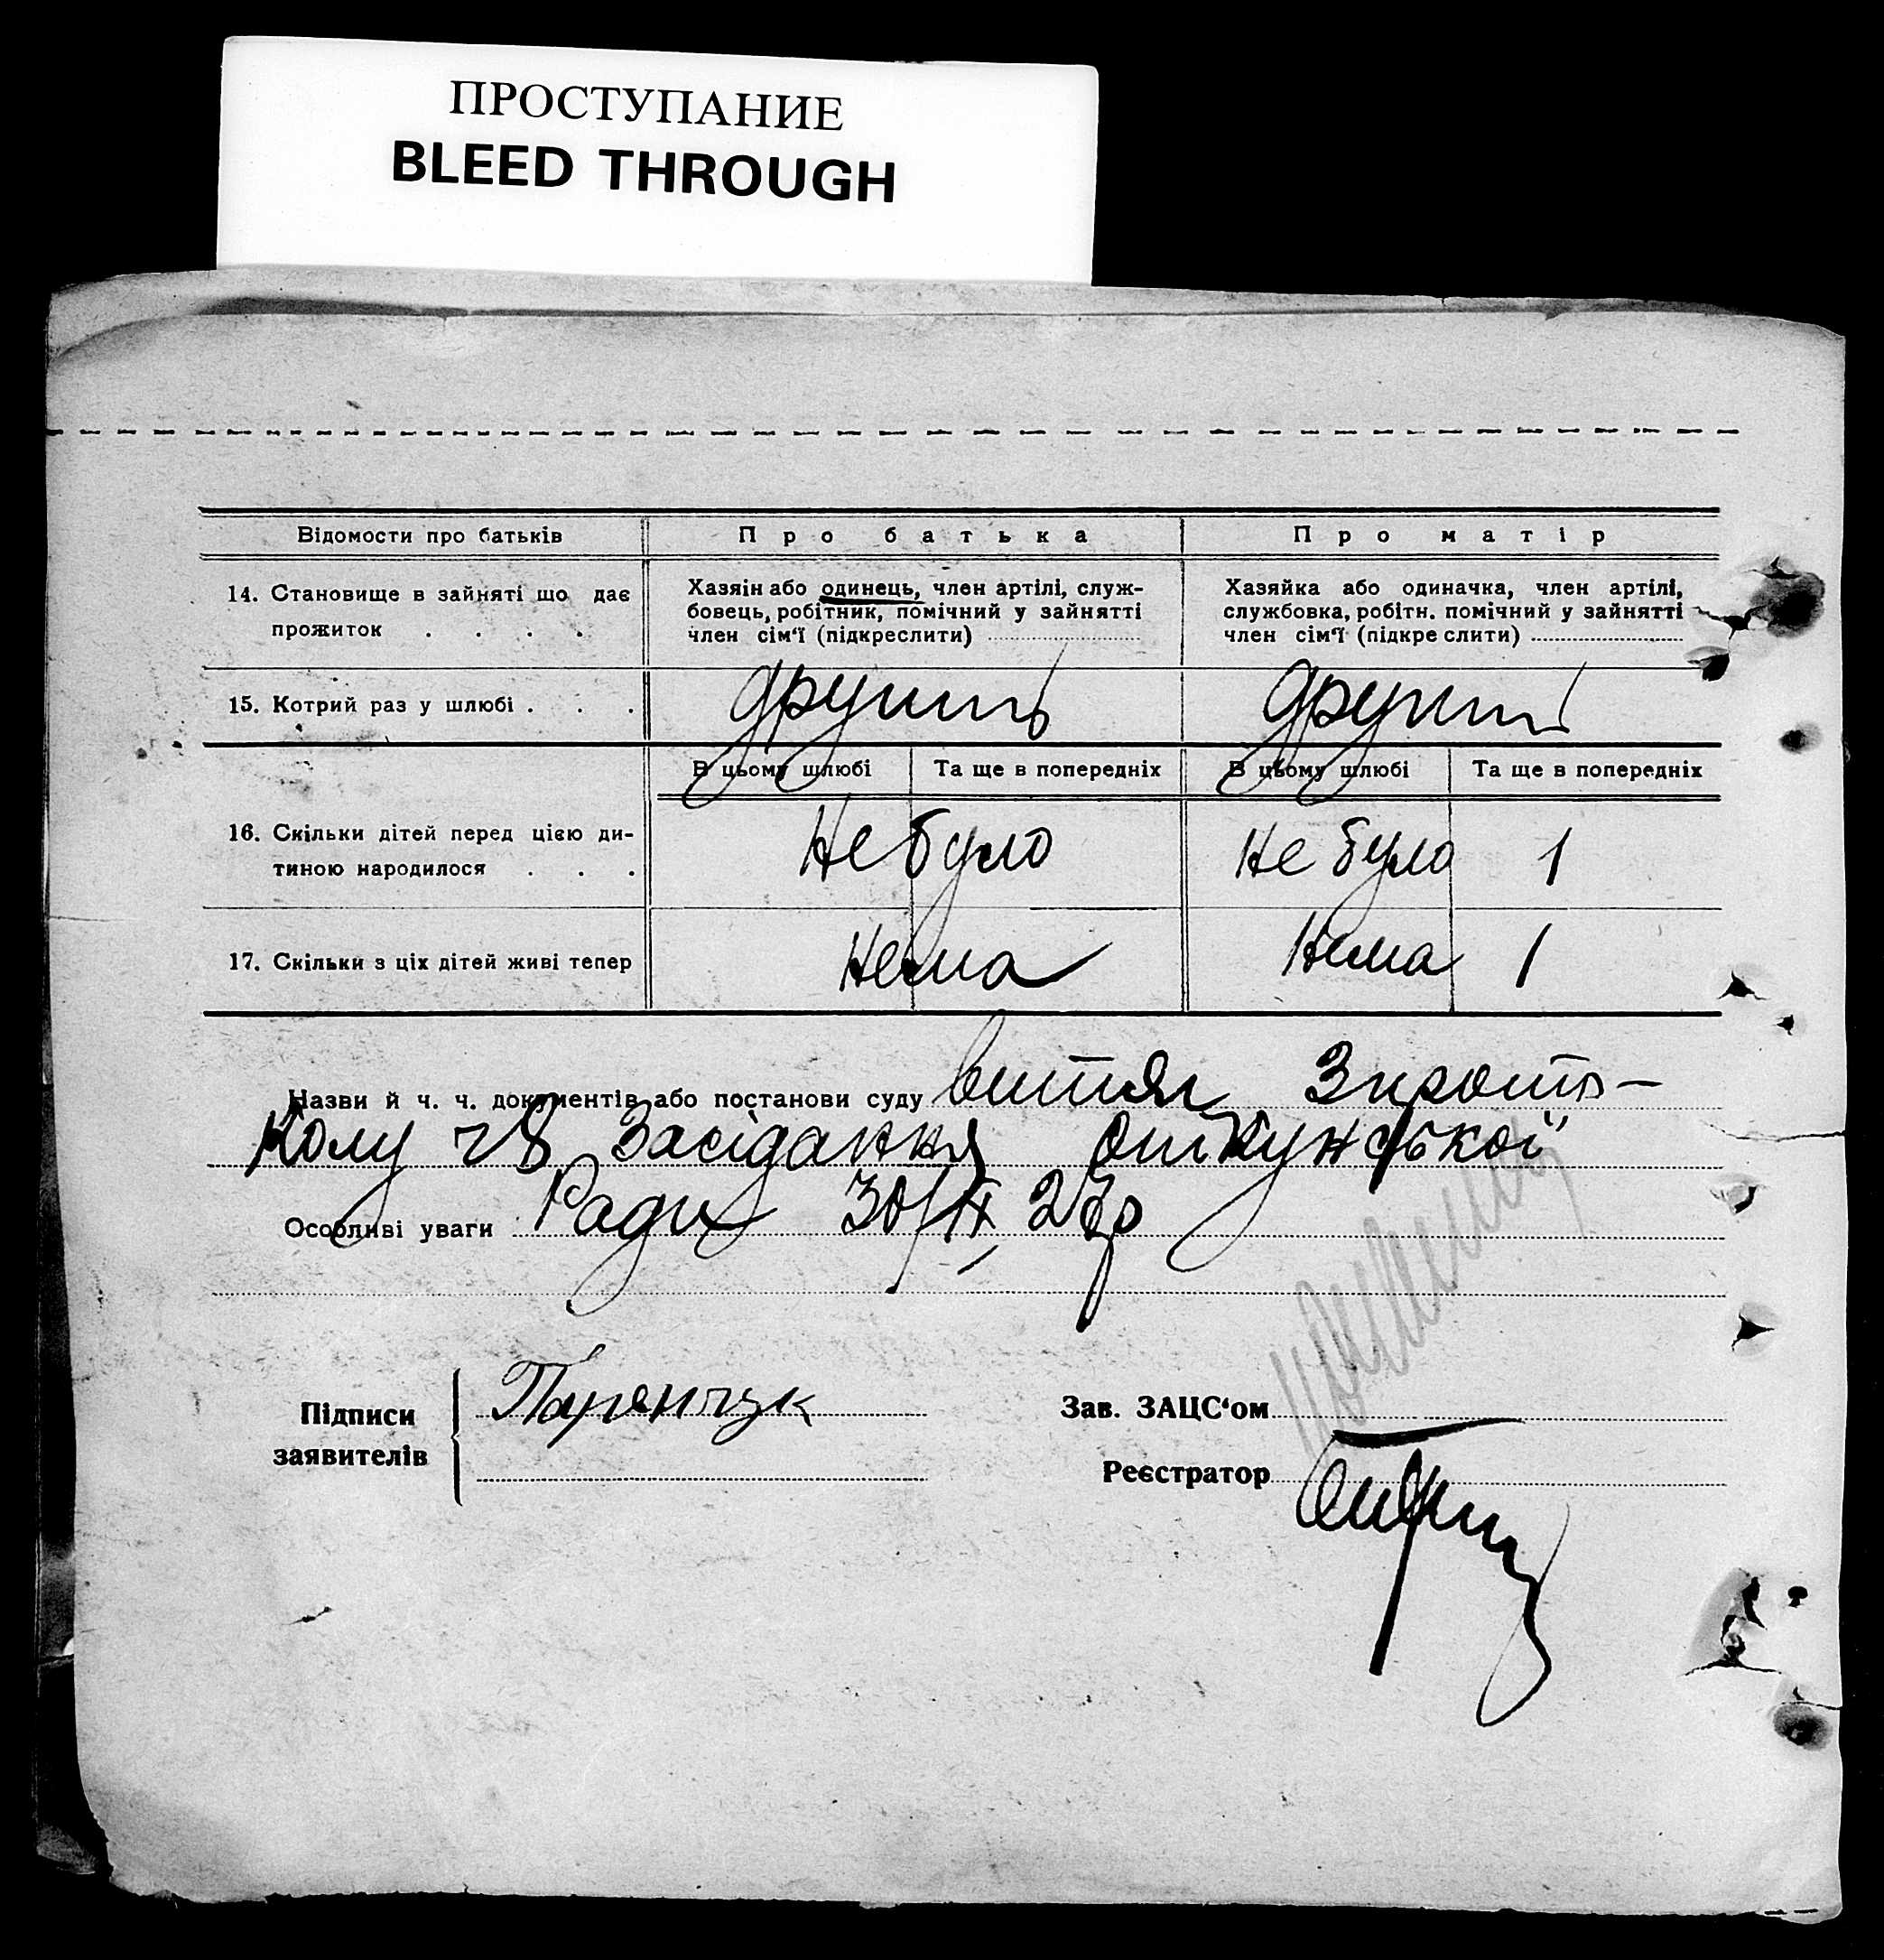 ПРОСТУПАНИЕ
BLEED THROUGH
Відомости про батьків
Про батька
Про матір
14. Становище в зайняті що дає
прожиток . . . .
Хазяїн або одинець, член артілі, служ-
бовець, робітник, помічний у зайнятті
член сім'ї (підкреслити)
Хазяйка або одиначка, член артілі,
службовка, робітн. помічний у зайнятті
член сім'ї (підкреслити)
15. Котрий раз у шлюбі . . .
другий
другий
В цьому шлюбі
Та ще в попередніх
В цьому шлюбі
Та ще в попередніх
16. Скільки дітей перед цією ди-
тиною народилося . . .
Не було
Не було 1
17. Скільки з ціх дітей живі тепер
Нема
Нема 1
Назви й ч. ч. документів або постанови суду витяг з прото-
колу ч 8 засідання
Особливі уваги Ради 30/ІХ 27р
Підписи
заявителів
Зав. ЗАЦС'ом
Реєстратор